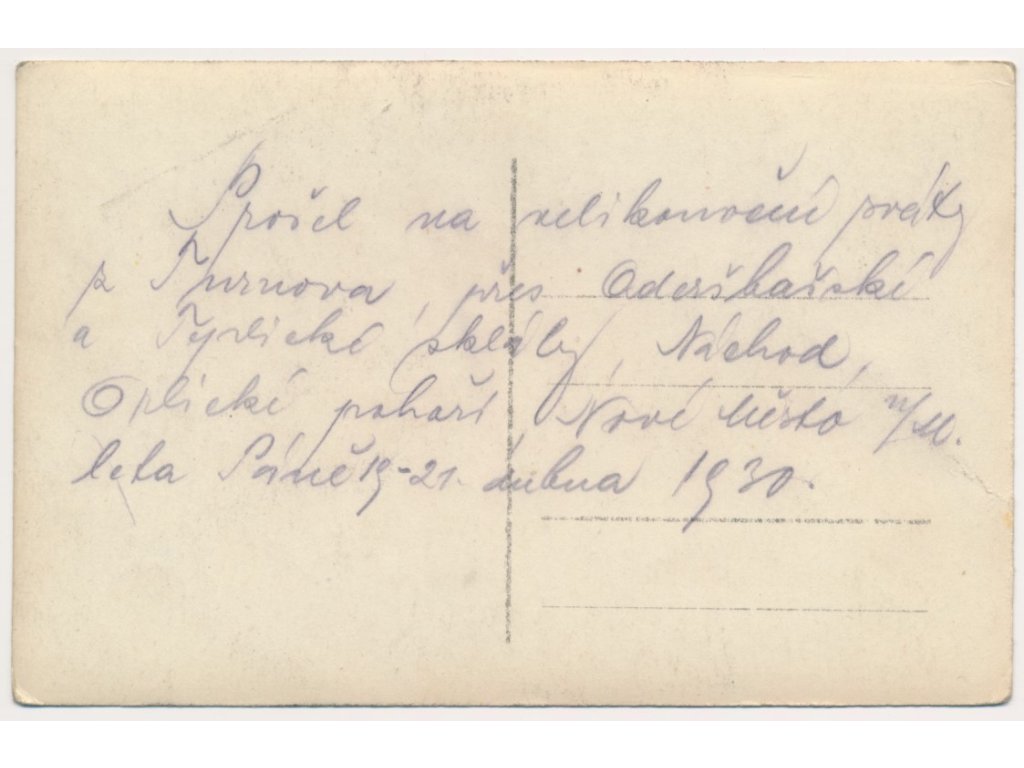 Prošel na velikonoční sváty
z Turnova, přes Aderšbašské
a Teplické skály, Náchod,
Orlické pohoří, Nové Město n/M.
leta Páně 19-21. dubna 1930.